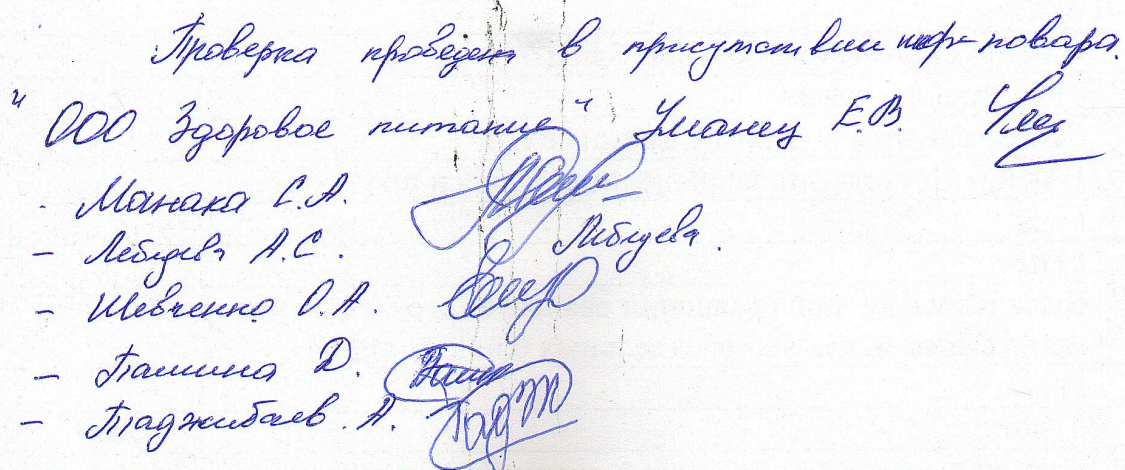 Проверка проведена в присутствии шеф-повара.
"ООО Здоровое питание" Уманец Е.В.
- Манака С.А.
- Лебедева А.С. Лебедева.
- Шевченко О.А.
- Пашина Д.
- Таджибаев А.